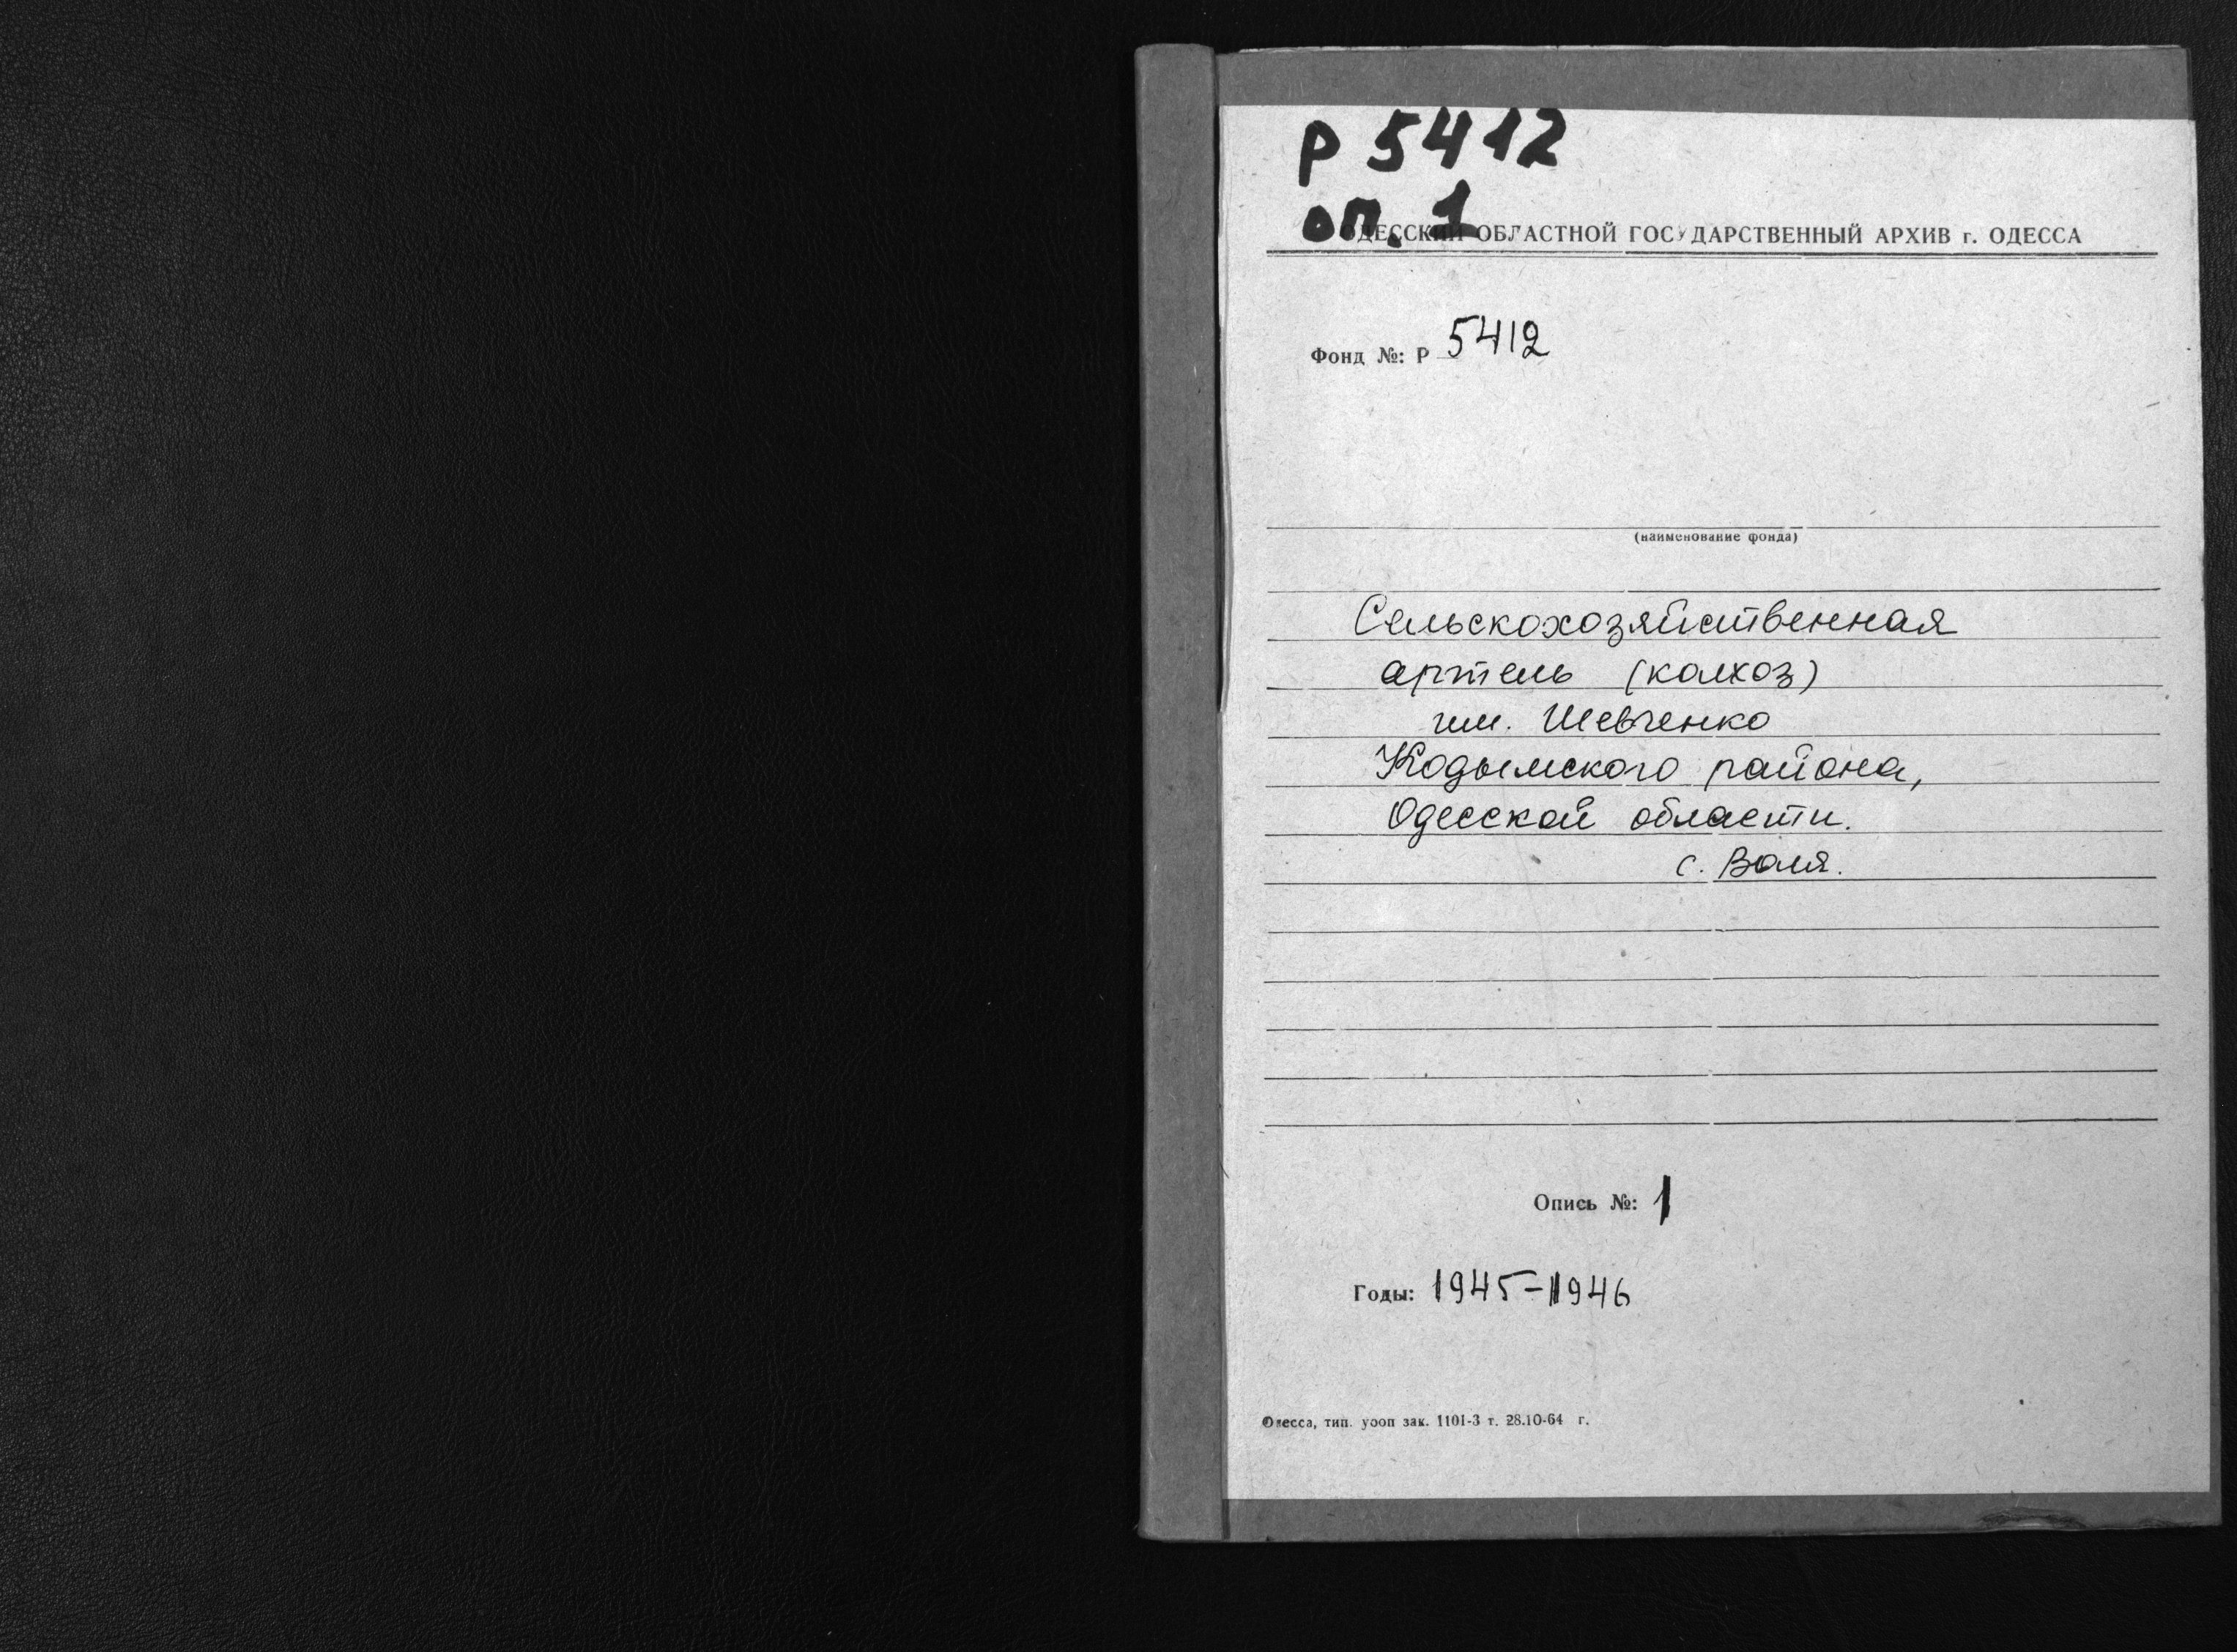 Р 5412
оп. 1
ОДЕССКИЙ ОБЛАСТНОЙ ГОСУДАРСТВЕННЫЙ АРХИВ г. ОДЕССА
Фонд №: Р 5412
(наименование фонда)
Сельскохозяйственная
артель (колхоз)
им. Шевченко
Кодымского района,
Одесской области.
с. Воля.
Опись №: 1
Годы: 1945-1946
Одесса, тип. уооп зак. 1101-3 т. 28.10-64 г.